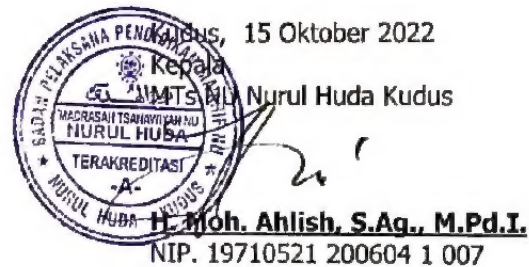 Kudus, 15 Oktober 2022
Kepala
MTs NU Nurul Huda Kudus
BADAN PELAKSANA PENDIDIKAN MA'ARIF NU
MADRASAH TSANAWIYAH NU
NURUL HUDA
TERAKREDITASI
-A-
NURUL HUDA KUDUS
H. Moh. Ahlish, S.Ag., M.Pd.I.
NIP. 19710521 200604 1 007